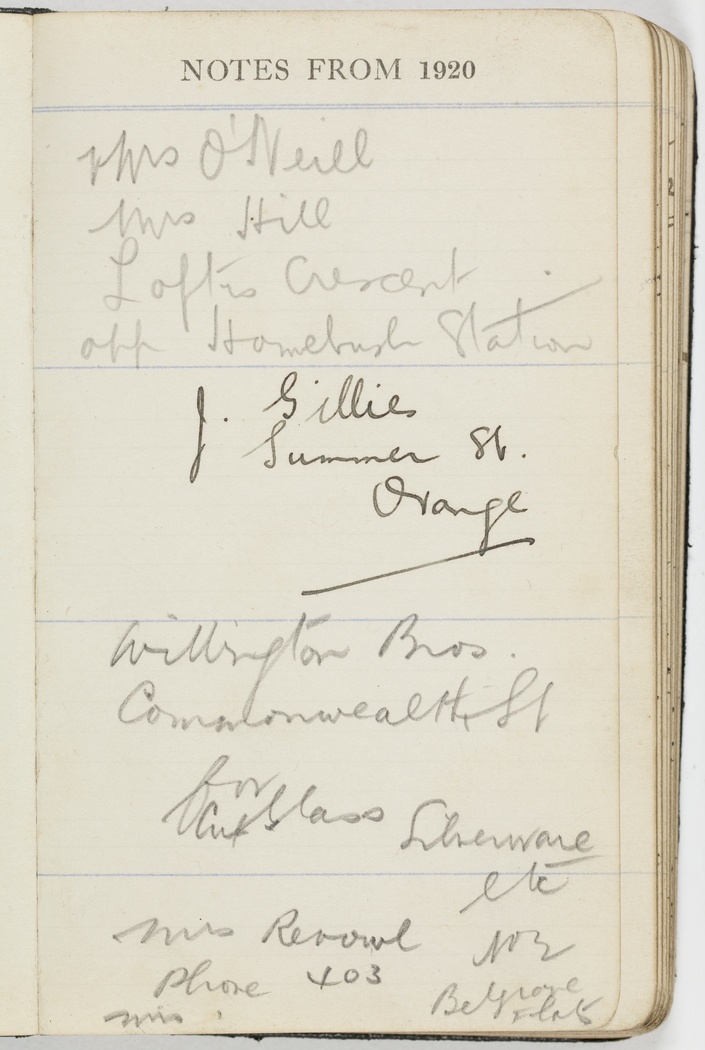 NOTES FROM 1920
Mrs O'Neill
Mrs Hill
Loftus Crescent
opp Homebush Station
J. Gillies
Summer St.
Orange
Willington Bros.
Commonwealth St
for
Cut Glass Silverware
etc
Mrs
Phone 403
Belgrave
Flats